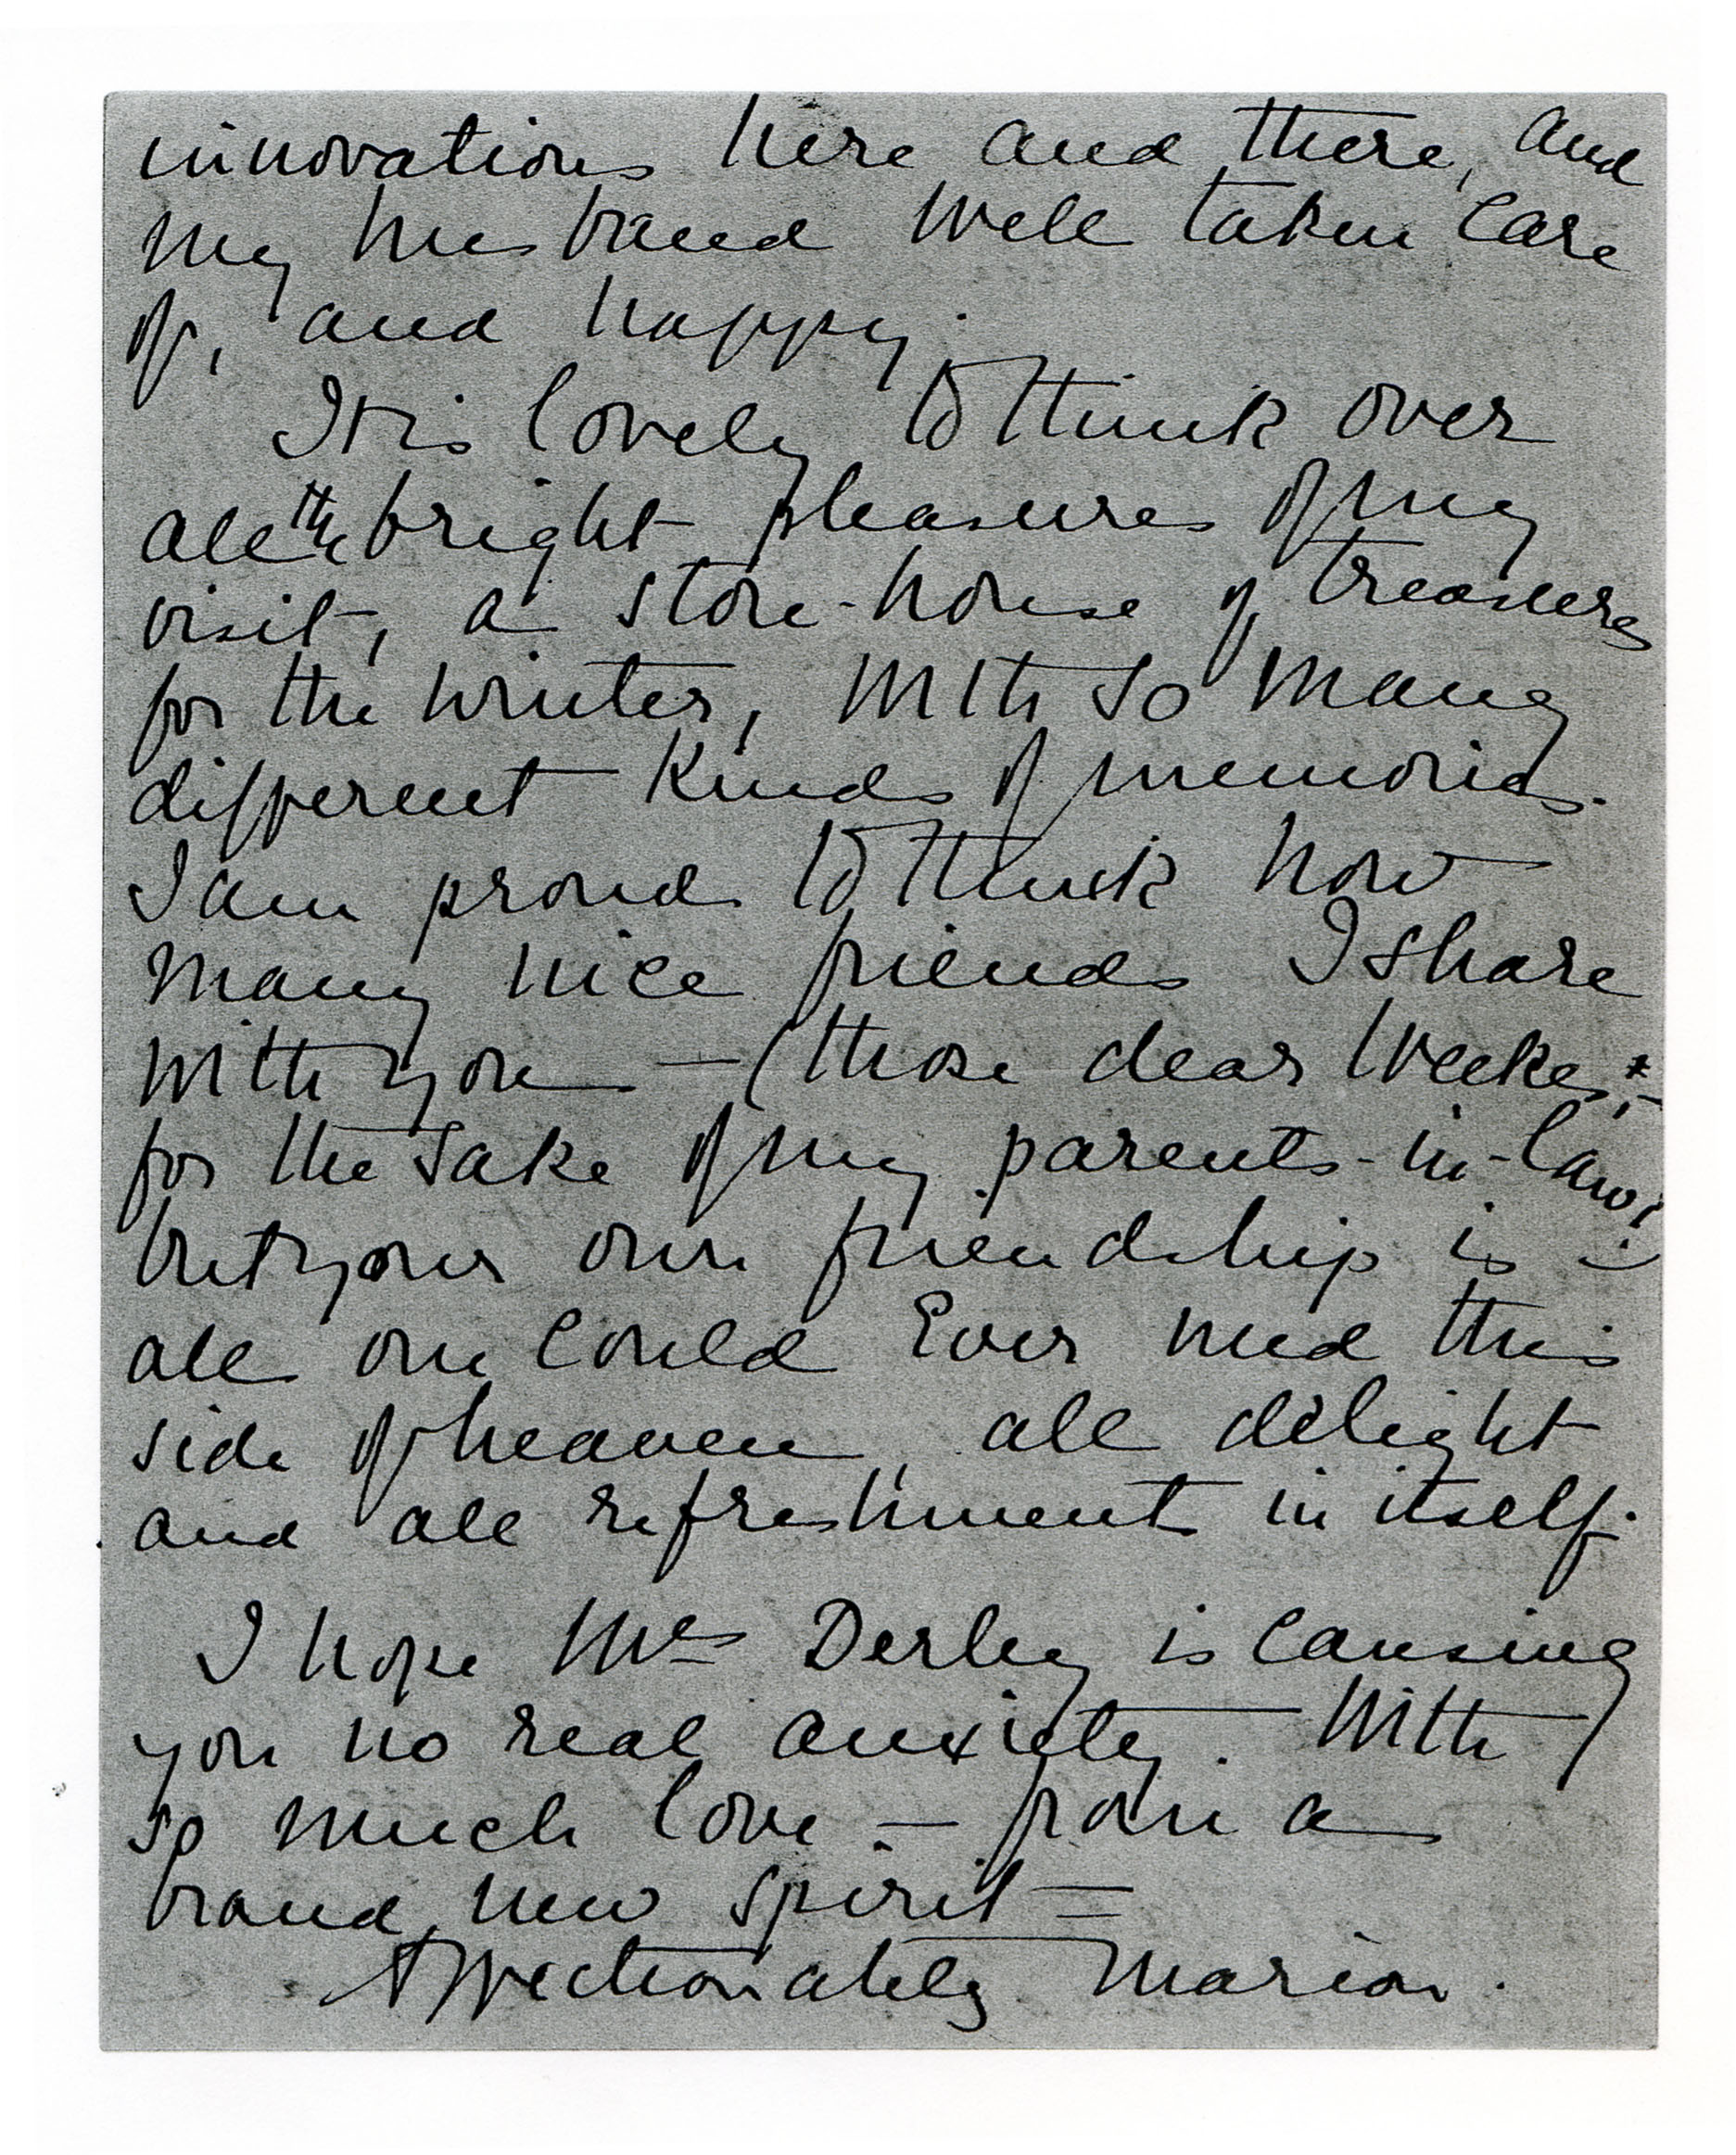 innovations here and there, and
my husband well taken care
of, and happy.
It is lovely to think over
all the bright pleasures of my
visit, a store-house of treasures
for the winter, with so many
different kinds of memories.
I am proud to think how
many nice friends I share
with you — (those dear Weekes,*
for the sake of my parents-in-law!
but your own friendship is
all one could ever need this
side of heaven, all delight
and all refreshment in itself.
I hope Mrs Derby is causing
you no real anxiety. With
so much love — from a
brand new spirit =
Affectionately Marion.